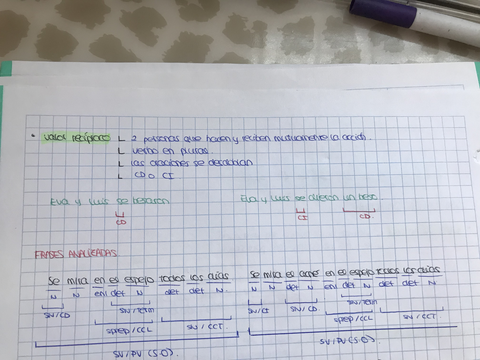 • valor recíproco ∟ 2 personas que hacen y reciben mutuamente la acción.
∟ verbo en plural.
∟ las oraciones se desdoblan
∟ CD o CI
Eva y Luis se besaron Eva y Luis se dieron un beso.
CD CI CD
FRASES ANALIZADAS
Se mira en el espejo todos los días Se mira el carpe en el espejo todos los días
N N enl det N det det N N N det N enl det N det det N
SN/CD SN/Term SN/CI SN/CD SN/Term
SPrep/CCL SN/CCT SPrep/CCL SN/CCT
SV/PV (SO). SV/PV (SO)